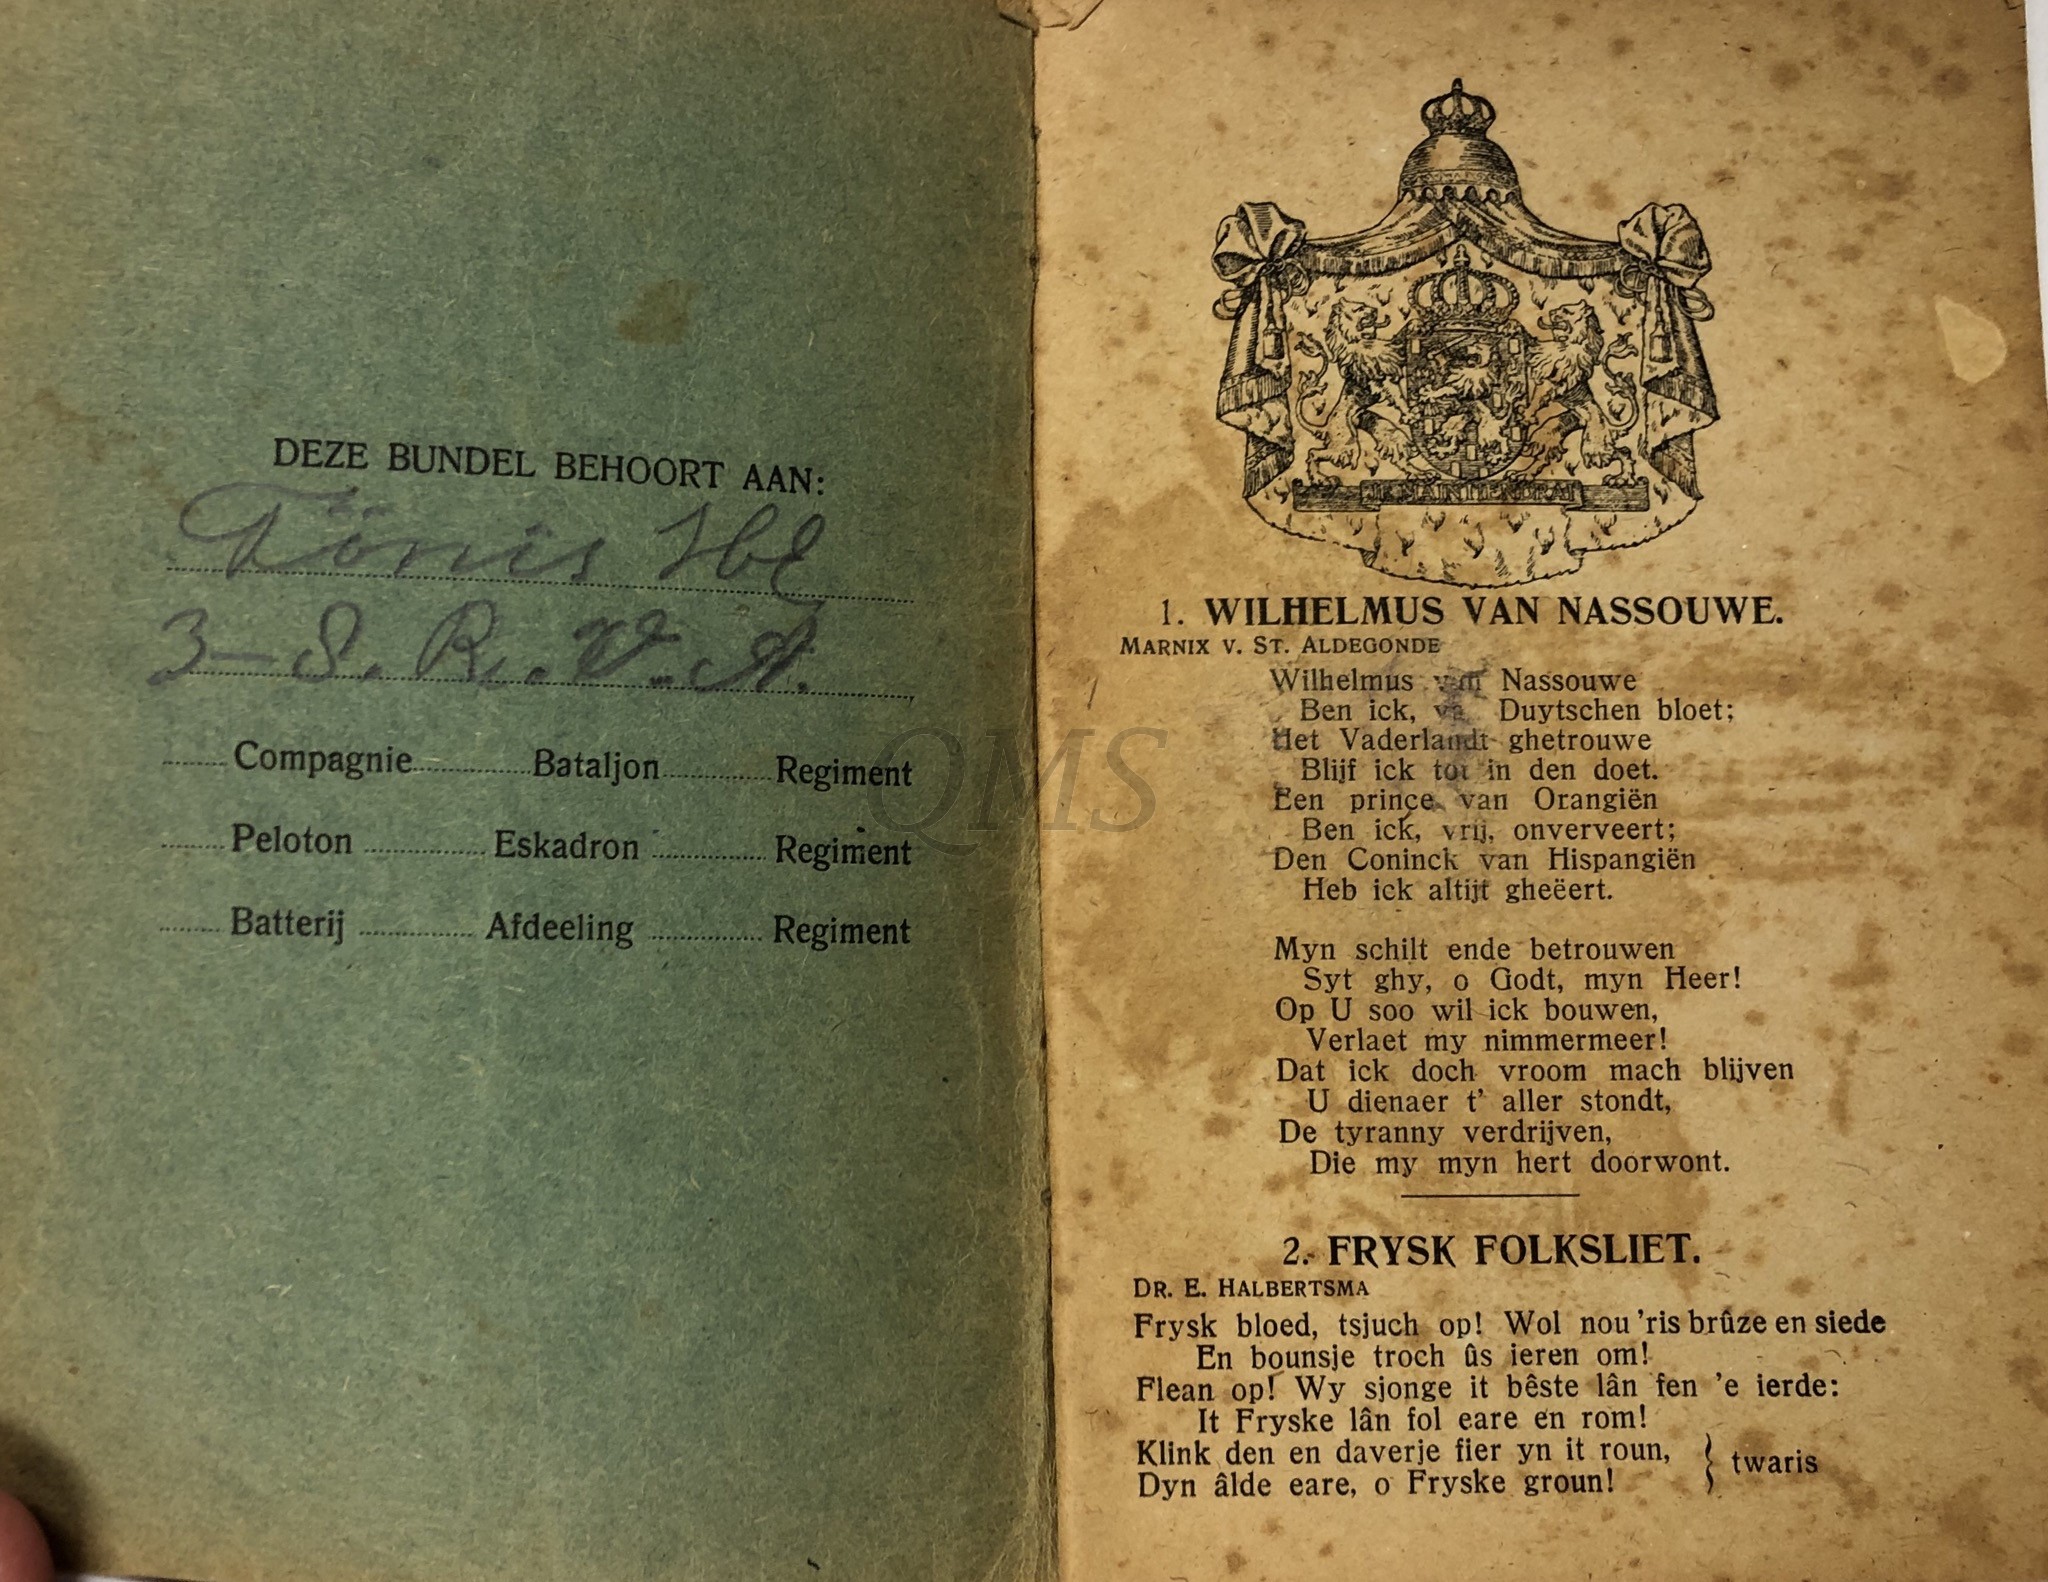 DEZE BUNDEL BEHOORT AAN:
Tönis
3-8. R. v. A.
Compagnie Bataljon Regiment
Peloton Eskadron Regiment
Batterij Afdeeling Regiment
QMS
JE MAINTIENDRAI
1. WILHELMUS VAN NASSOUWE.
MARNIX V. ST. ALDEGONDE
Wilhelmus van Nassouwe
Ben ick, va Duytschen bloet;
Het Vaderlandt ghetrouwe
Blijf ick tot in den doet.
Een prinçe van Orangiën
Ben ick, vrij, onverveert;
Den Coninck van Hispangiën
Heb ick altijt gheëert.
Myn schilt ende betrouwen
Syt ghy, o Godt, myn Heer!
Op U soo wil ick bouwen,
Verlaet my nimmermeer!
Dat ick doch vroom mach blijven
U dienaer t' aller stondt,
De tyranny verdrijven,
Die my myn hert doorwont.
2. FRYSK FOLKSLIET.
DR. E. HALBERTSMA
Frysk bloed, tsjuch op! Wol nou 'ris brûze en siede
En bounsje troch ûs ieren om!
Flean op! Wy sjonge it bêste lân fen 'e ierde:
It Fryske lân fol eare en rom!
Klink den en daverje fier yn it roun,
Dyn âlde eare, o Fryske groun! } twaris